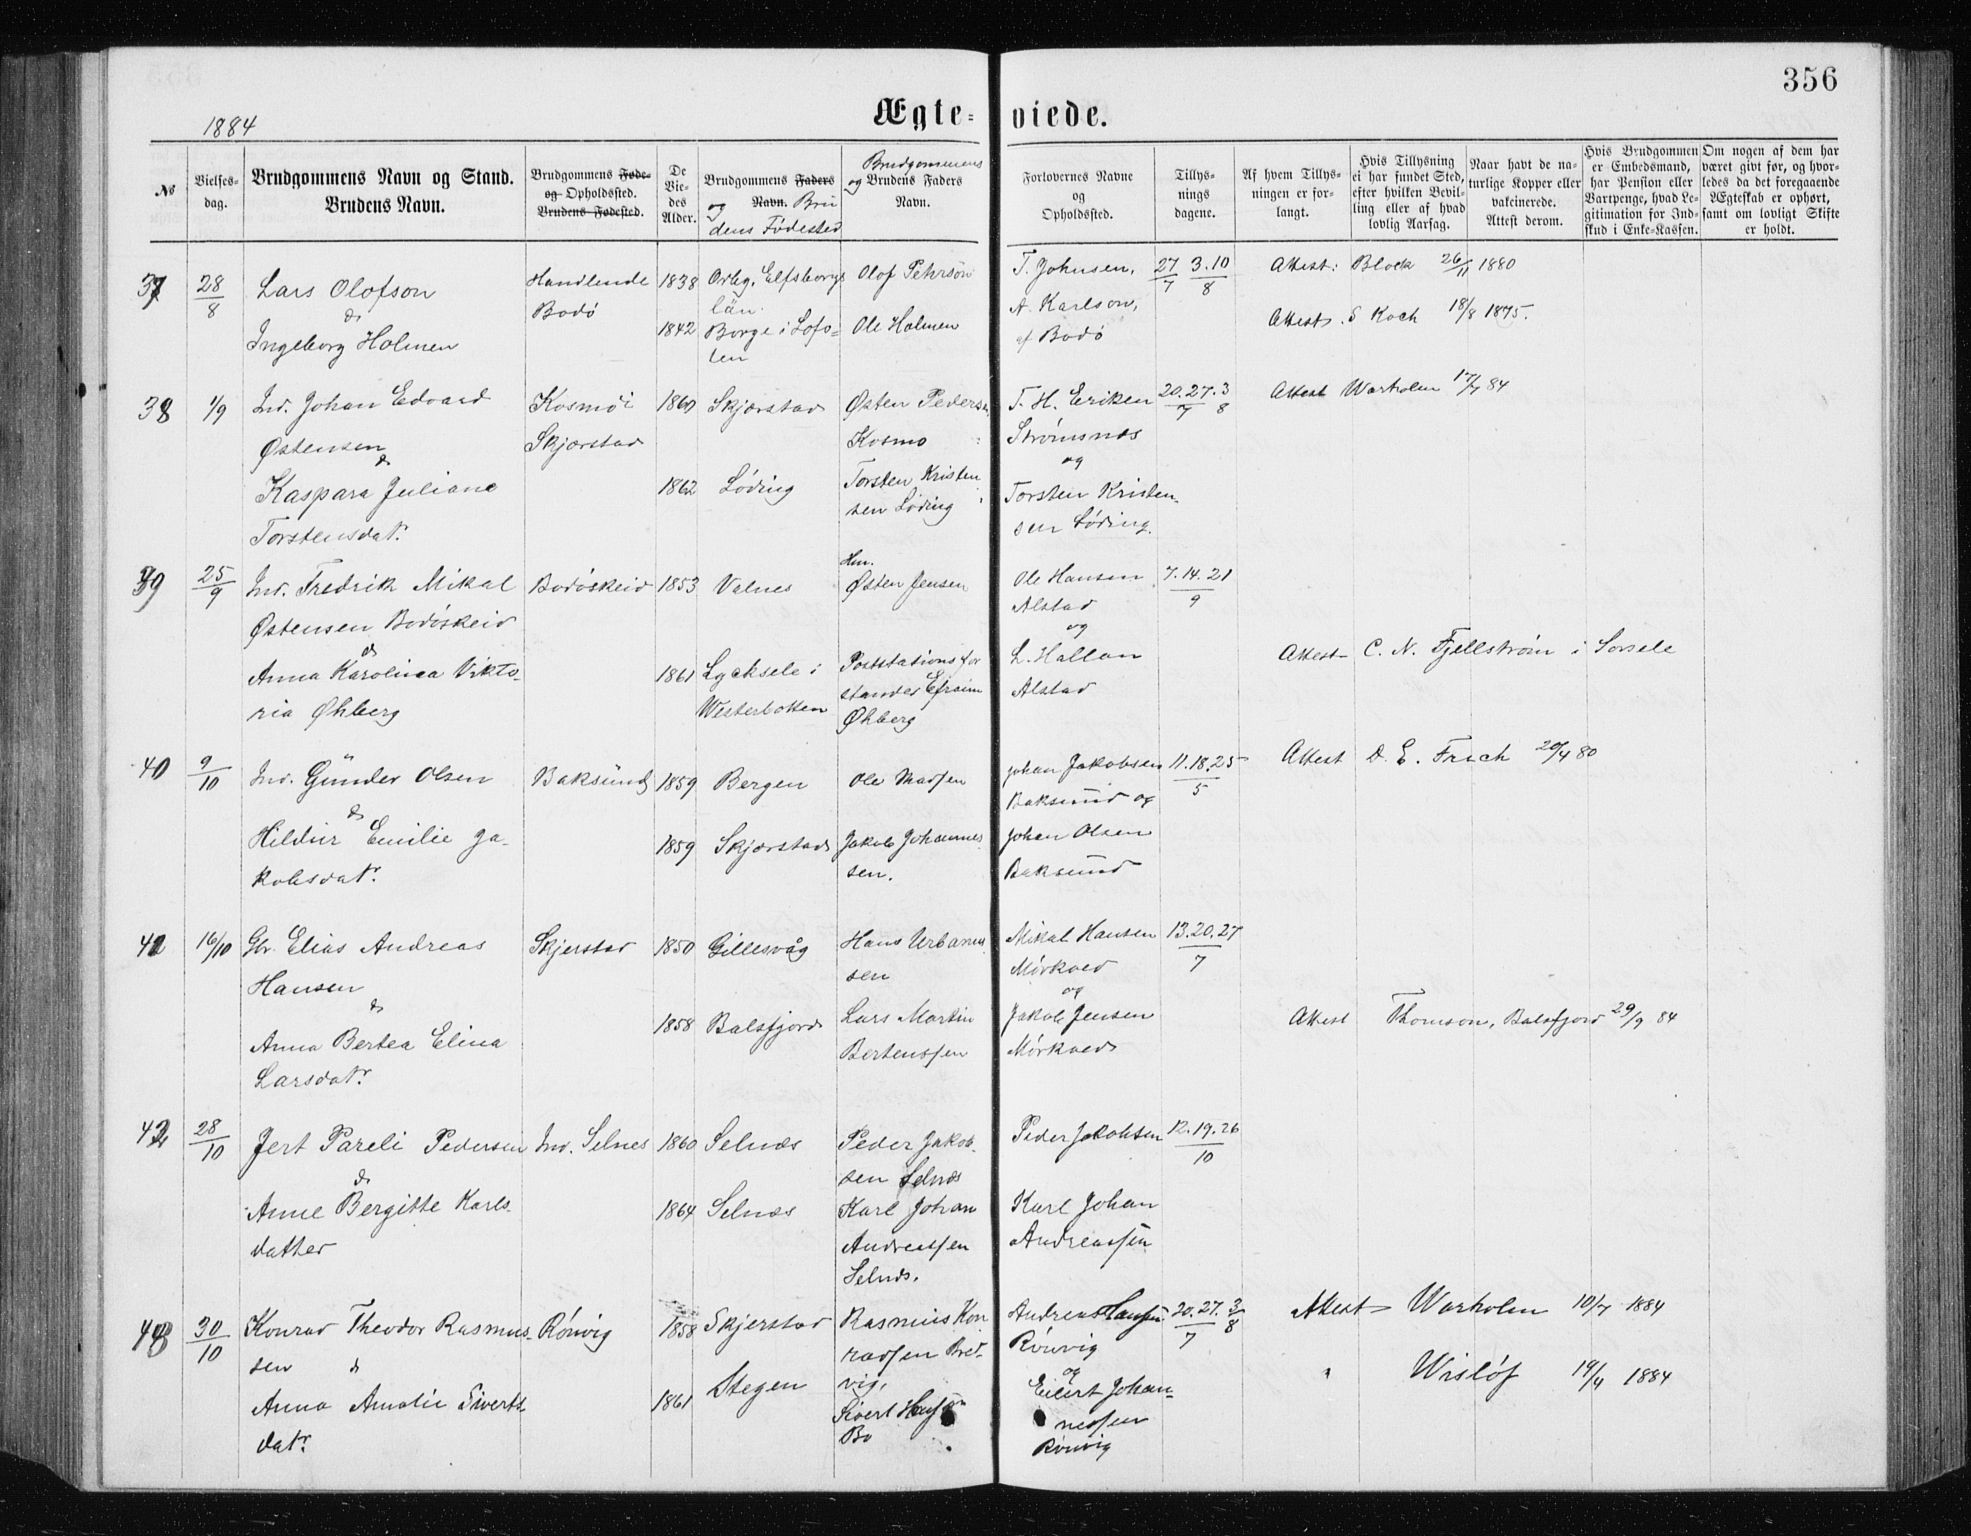 356
Ægte-viede.
1884
№
Vielses-
dag.
Brudgommens Navn og Stand.
Brudens Navn.
Brudgommens Føde-
og Opholdssted.
Brudens Fødested.
De
Vie-
des
Alder.
Brudgommens Faders
og Navn. Bru
dens Födested
Brudgommens
og Brudens Faders
Navn.
Forlovernes Navne
og
Opholdssted.
Tillys-
nings
dagene.
Af hvem Tillys-
ningen er for-
langt.
Hvis Tillysning
ei har fundet Sted,
efter hvilken Bevil-
ling eller af hvad
lovlig Aarsag.
Naar havt de na-
turlige Kopper eller
vakcinerede.
Attest derom.
Hvis Brudgommen
er Embedsmand,
har Pension eller
Vartpenge, hvad Le-
gitimation for Ind-
skud i Enke-Kassen.
Om nogen af dem har
været givt før, og hvor-
ledes da det foregaaende
Ægteskab er ophørt,
samt om lovligt Skifte
er holdt.
37
28/8
Lars Olofson
&
Ingeborg Holmen
Handlende
Bodö
1838
1842
Elfsborgs
län.
Borge i Lofo-
ten
Olof Pehrsön
Ole Holmen
T. Johnsen,
A. Karlson,
af Bodö
27/7 3.10/8
Attest: Block 26/11 1880
Attest. S Koch 18/8 1875.
38
1/9
Ind. Johan Edvard
Østensen
&
Kaspara Juliane
Torstensdatr.
Kosmöi
Skjærstad
1860
1862
Skjærstad
Löding
Østen Pedersen
Kosmo
Torsten Kristen
sen Löding
T. H. Eriksen
Strömsnes
og
Torsten Kristen-
sen Löding.
20.27/7 3/8
Attest Warholm 17/7 84
39
25/9
Ind. Fredrik Mikal
Østensen Bodöskeid
&
Anna Karolina Vikto-
ria Øhberg
Bodöskeid
1853
1861
Valnes
Lycksele i
Westerbotten
Hm.
Østen Jensen
Poststationsfor
stander Efraim
Øhberg
Ole Hansen
Alstad
og
L. Hallan
Alstad
7.14.21/9
Attest C. N. Fjellström i Sorsele
40
9/10
Ind. Günder Olsen
&
Hildur Emilie Ja-
kobsdatr.
Baksund
1859
1859
Bergen
Skjærstad
Ole Madsen
Jakob Johannes
sen.
Johan Jakobsen
Baksund og
Johan Olsen
Baksund
11.18.25/5
Attest D. E. Frich 20/4 80
41
16/10
Gbr. Elias Andreas
Hansen
&
Anna Bertea Elina
Larsdatr.
Skjerstad
1850
1858
Gillesvåg
Balsfjord
Hans Urbanus
sen
Lars Martin
Bertenssen
Mikal Hansen
Mörkved
og
Jakob Jensen
Mörkved
13.20.27/7
Attest Thomson, Balsfjord 29/9 84
42
28/10
Jert Pareli Pedersen
&
Anne Bergitte Karls-
datter
Ind. Selnes
1860
1864
Selnæs
Selnæs
Peder Jakob-
sen Selnæs
Karl Johan
Andreassen
Selnæs.
Peder Jakobsen
Karl Johan
Andreassen
12.19.26/10
43
30/10
Konrad Theodor Rasmus-
sen &
Anna Amalie Siverts-
datr.
Rönvig
1858
1861
Skjerstad
Stegen
Rasmus Kon
radsen Bred-
vig.
Sivert Hansen
Bø
Andreas Hansen
Rönvig
og
Eilert Johan-
nessen
Rönvig
20.27/7 3/8
Attest Warholm 10/7 1884
" Wislöf 19/4 1884